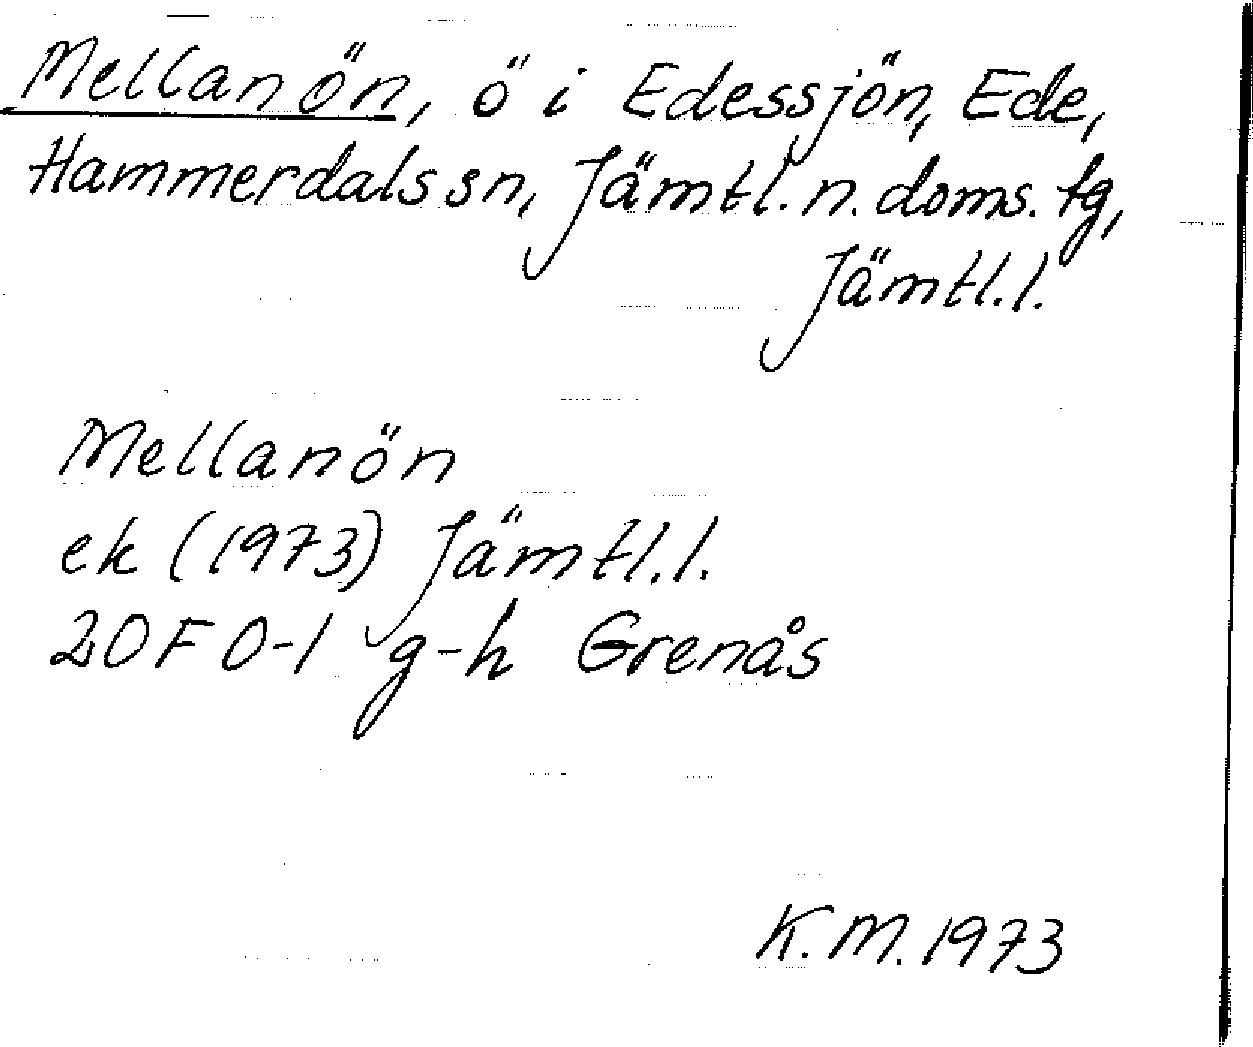 Mellanön, ö i Edessjön, Ede,
Hammerdals sn, Jämtl. n. doms. tg,
Jämtl. l.
Mellanön
ek (1973) Jämtl. l.
20F 0-1 g-h Grenås
K. M. 1973